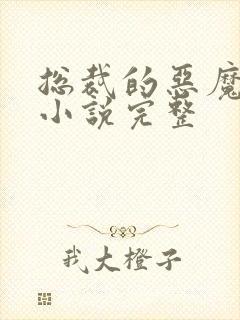 总裁的恶魔
小说完整
我大橙子